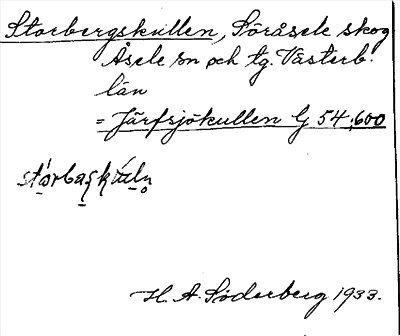 Storbergskullen, Söråsele skog
Åsele sn och tg. Västerb.
län
= Järfsjökullen G 54,600
H. A. Söderberg 1933.